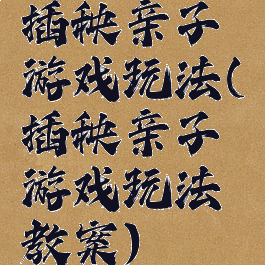 插秧亲子
游戏玩法(
插秧亲子
游戏玩法
教案)